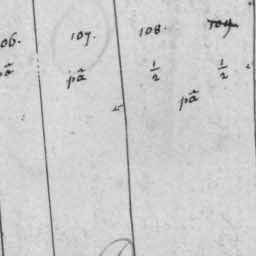 06. 107. 108. 109
pã pã ½ ½
pã